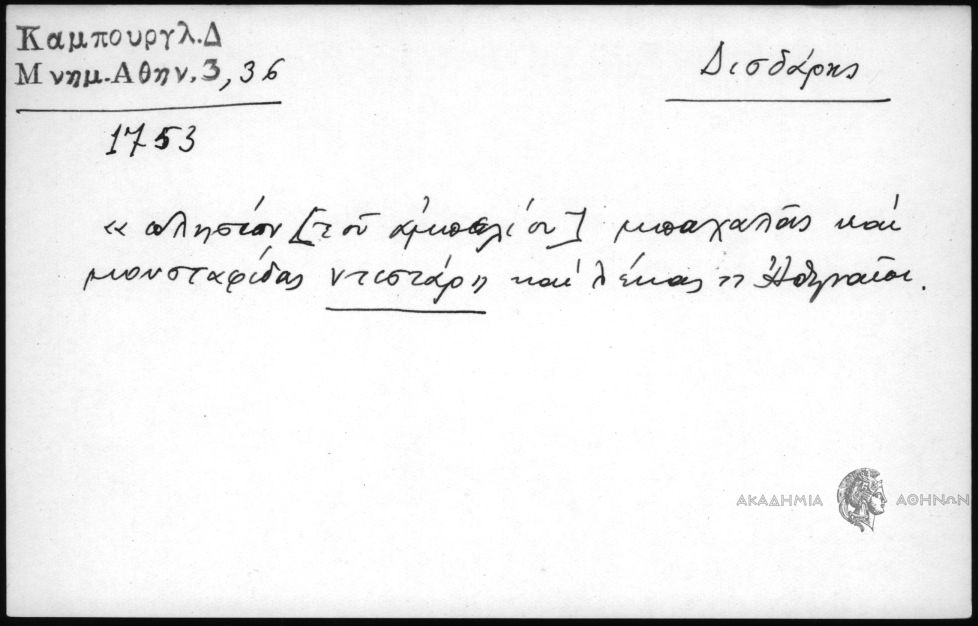 Καμπουργλ.Δ
Μνημ.Αθην.3,36
Δισδάρης
1753
« πλησίον [τοῦ ἀμπελίου] μπαχαλᾶς καὶ
μουσταφίδας ντιστάρη καὶ λέκας Ἀθηναῖοι.
ΑΚΑΔΗΜΙΑ ΑΘΗΝΩΝ